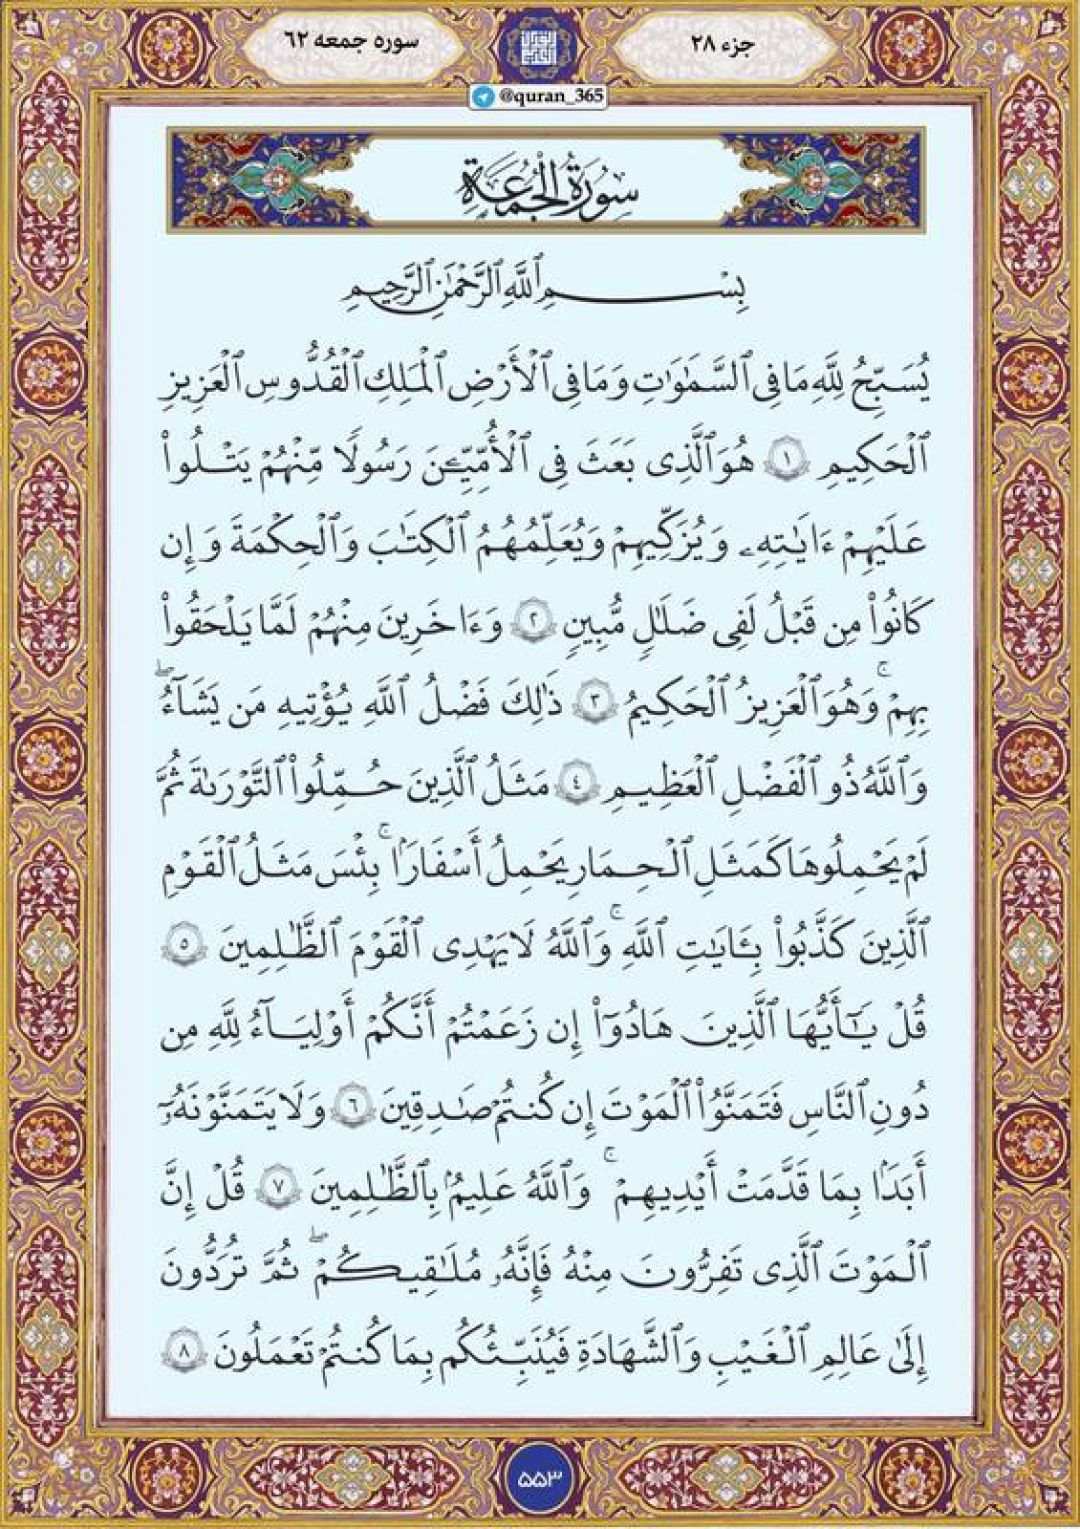 جزء ۲۸
سوره جمعه ۶۲
@quran_365
سُورَةُ الْجُمُعَةِ
بِسْمِ ٱللَّهِ ٱلرَّحْمَٰنِ ٱلرَّحِيمِ
يُسَبِّحُ لِلَّهِ مَا فِى ٱلسَّمَٰوَٰتِ وَمَا فِى ٱلْأَرْضِ ٱلْمَلِكِ ٱلْقُدُّوسِ ٱلْعَزِيزِ
ٱلْحَكِيمِ ١ هُوَ ٱلَّذِى بَعَثَ فِى ٱلْأُمِّيِّـۧنَ رَسُولًا مِّنْهُمْ يَتْلُوا۟
عَلَيْهِمْ ءَايَٰتِهِۦ وَيُزَكِّيهِمْ وَيُعَلِّمُهُمُ ٱلْكِتَٰبَ وَٱلْحِكْمَةَ وَإِن
كَانُوا۟ مِن قَبْلُ لَفِى ضَلَٰلٍ مُّبِينٍ ٢ وَءَاخَرِينَ مِنْهُمْ لَمَّا يَلْحَقُوا۟
بِهِمْ ۚ وَهُوَ ٱلْعَزِيزُ ٱلْحَكِيمُ ٣ ذَٰلِكَ فَضْلُ ٱللَّهِ يُؤْتِيهِ مَن يَشَآءُ ۖ
وَٱللَّهُ ذُو ٱلْفَضْلِ ٱلْعَظِيمِ ٤ مَثَلُ ٱلَّذِينَ حُمِّلُوا۟ ٱلتَّوْرَىٰةَ ثُمَّ
لَمْ يَحْمِلُوهَا كَمَثَلِ ٱلْحِمَارِ يَحْمِلُ أَسْفَارًۢا ۚ بِئْسَ مَثَلُ ٱلْقَوْمِ
ٱلَّذِينَ كَذَّبُوا۟ بِـَٔايَٰتِ ٱللَّهِ ۚ وَٱللَّهُ لَا يَهْدِى ٱلْقَوْمَ ٱلظَّٰلِمِينَ ٥
قُلْ يَٰٓأَيُّهَا ٱلَّذِينَ هَادُوٓا۟ إِن زَعَمْتُمْ أَنَّكُمْ أَوْلِيَآءُ لِلَّهِ مِن
دُونِ ٱلنَّاسِ فَتَمَنَّوُا۟ ٱلْمَوْتَ إِن كُنتُمْ صَٰدِقِينَ ٦ وَلَا يَتَمَنَّوْنَهُۥٓ
أَبَدًۢا بِمَا قَدَّمَتْ أَيْدِيهِمْ ۚ وَٱللَّهُ عَلِيمٌۢ بِٱلظَّٰلِمِينَ ٧ قُلْ إِنَّ
ٱلْمَوْتَ ٱلَّذِى تَفِرُّونَ مِنْهُ فَإِنَّهُۥ مُلَٰقِيكُمْ ۖ ثُمَّ تُرَدُّونَ
إِلَىٰ عَالِمِ ٱلْغَيْبِ وَٱلشَّهَادَةِ فَيُنَبِّئُكُم بِمَا كُنتُمْ تَعْمَلُونَ ٨
۵۵۳